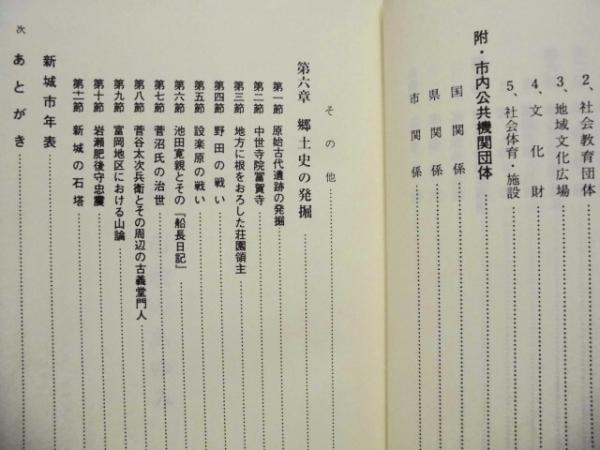 2、社会教育団体
3、地域文化広場
4、文化財
5、社会体育・施設
附・市内公共機関団体
国関係
県関係
市関係
その他
第六章　郷土史の発掘
第一節　原始古代遺跡の発掘
第二節　中世寺院冨賀寺
第三節　地方に根をおろした荘園領主
第四節　野田の戦い
第五節　設楽原の戦い
第六節　池田寛親とその『船長日記』
第七節　菅沼氏の治世
第八節　菅谷太次兵衛とその周辺の古義堂門人
第九節　富岡地区における山論
第十節　岩瀬肥後守忠震
第十一節　新城の石塔
新城市年表
あとがき
次